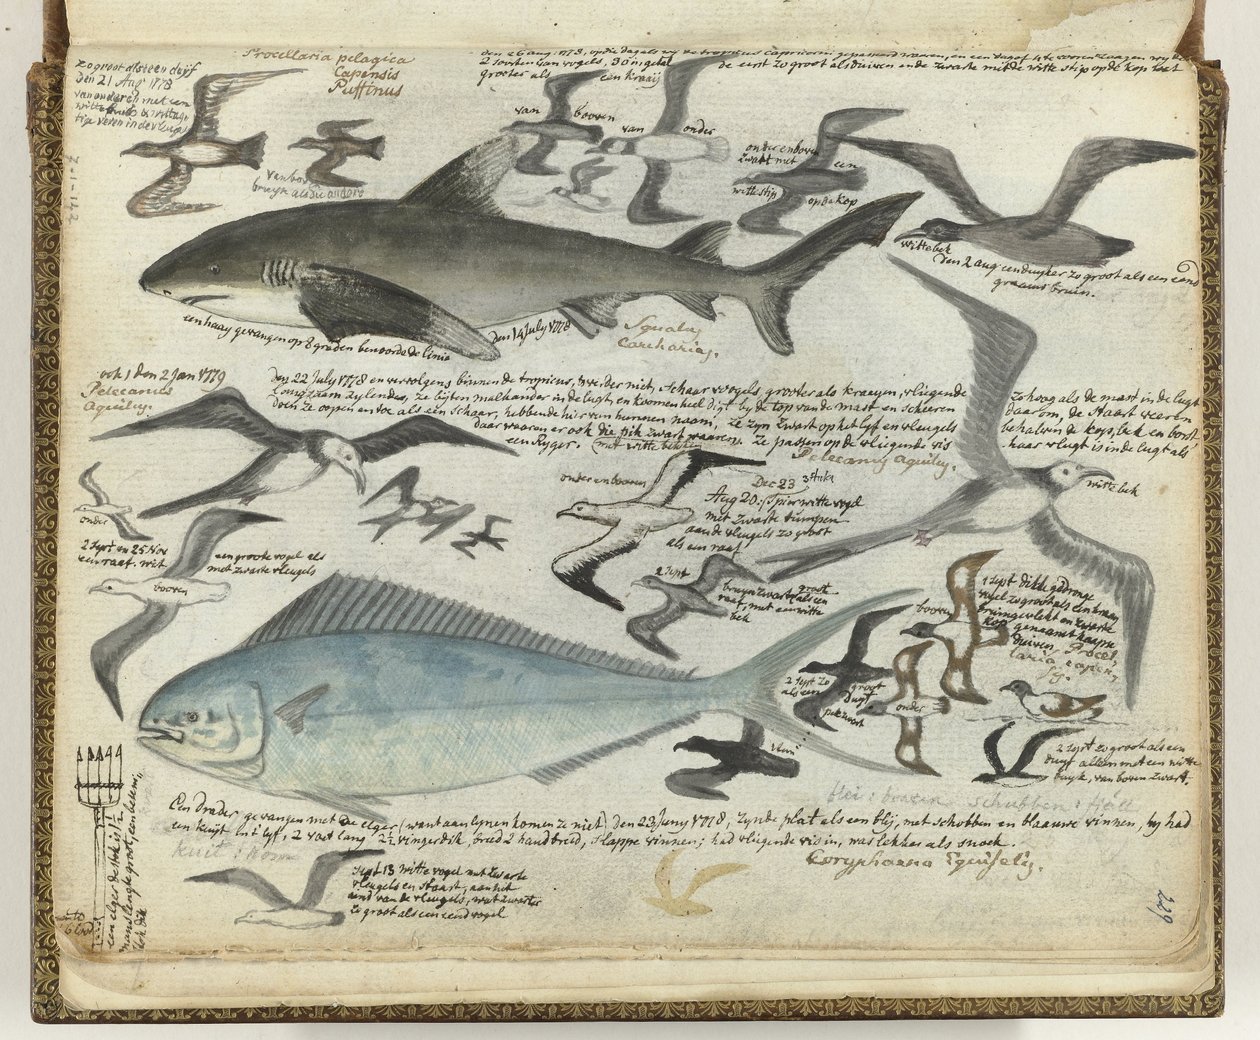 zo groot als een duyf
den 21 Aug 1778
van onderen met een
witte
veren in de
Procellaria pelagica
Capensis
Puffinus
van bo
bruyn als die andere
den 26 aug: 1778, op die dagels wy de tropicus Capricorni gepasseerd waaren, en een dag of 4 te vooren zaagen wy
2 soorten van vogels, 3 à in getal de eerst zo groot als duiven en de zwarte met de witte stip op de kop haet
grooter als een kraaij
van booven
van onder
onder en boven
zwart met een
witte stip op de kop
witte bek
den 2 aug een duyker zo groot als een eend
graauw bruin.
een haay gevangen op 8 graden benoorde de linie den 14 July 1778
Squalus
Carcharias.
ook 1 den 2 Jan 1779
Pelecanus
Aquilus.
den 22 July 1778 en vervolgens binnen de tropicus, verder niet, schaar voogels grooter als kraeyen, vliegende
zo hoog als de mast in de lugt
Langzaam zylende, ze bijten malkander in de lugt en koomen heel digt by de top van de mast en scheeren
daarom, de staart veeren
doen ze oopen en toe als een schaar, hebbende hier van hunnen naam, ze zyn zwart op het lyf en vleugels
behalven de kop, bek en borst
daar waaren er ook die pik zwart waaren, ze passen op de vliegende vis
haar vlugt is in de lugt als
een Ryger. met witte bekken
Pelecanus Aquilus.
witte bek
onder
onder en booven
Dec 23 3 stuks
Aug 20: Spier witte vogel
met zwarte
aan de vleugels zo groot
als een raaf
2 Sept en 25 Nov
een raaf. wit
een groote vogel als
met zwarte vleugels
booven
2 Sept
bruyn zwart groot
als een
raaf, met een witte
bek
booven
1 Sept dikke gedronge
vogel zo groot als een kraay
bruin gevlekt en zwarte
kop genaamt kaapse
duiven Procel
laria capen
sis.
2 Sept zo groot
als een duyf
pik zwart
onder
2 Sept zo groot als een
duyf alleen met een witte
buyk, van boven zwart.
Een drader gevangen met de elger (want aan lynen komen ze niet) den 23 Juny 1778, zynde plat als een blij, met schobben en blaauwe vinnen, hy had
een kuijt in 't lyf, 2 voet lang 2½ vinger dik, breed 2 handbreed, slappe vinnen; had vliegende vis in, was lekker als snoek.
Coryphaena Equiselis.
kuit :
schubben :
een elger de stok is 1½
mans lengte groot, een beteeni
Sept 13 witte vogel met zwarte
vleugels en staart, aan het
end van de vleugels, wat zwarter
zo groot als een eend vogel